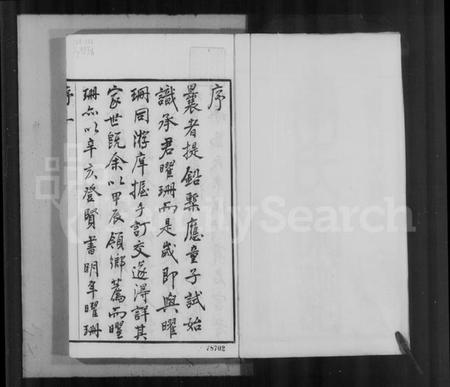 序
曩者提鉛槧應童子試始
識承君曜珊而是歲即與曜
珊同游庠握手訂交遂得詳其
家世既余以甲辰領鄉薦而曜
珊亦以辛亥登賢書明年曜珊
序一
78702
FamilySearch